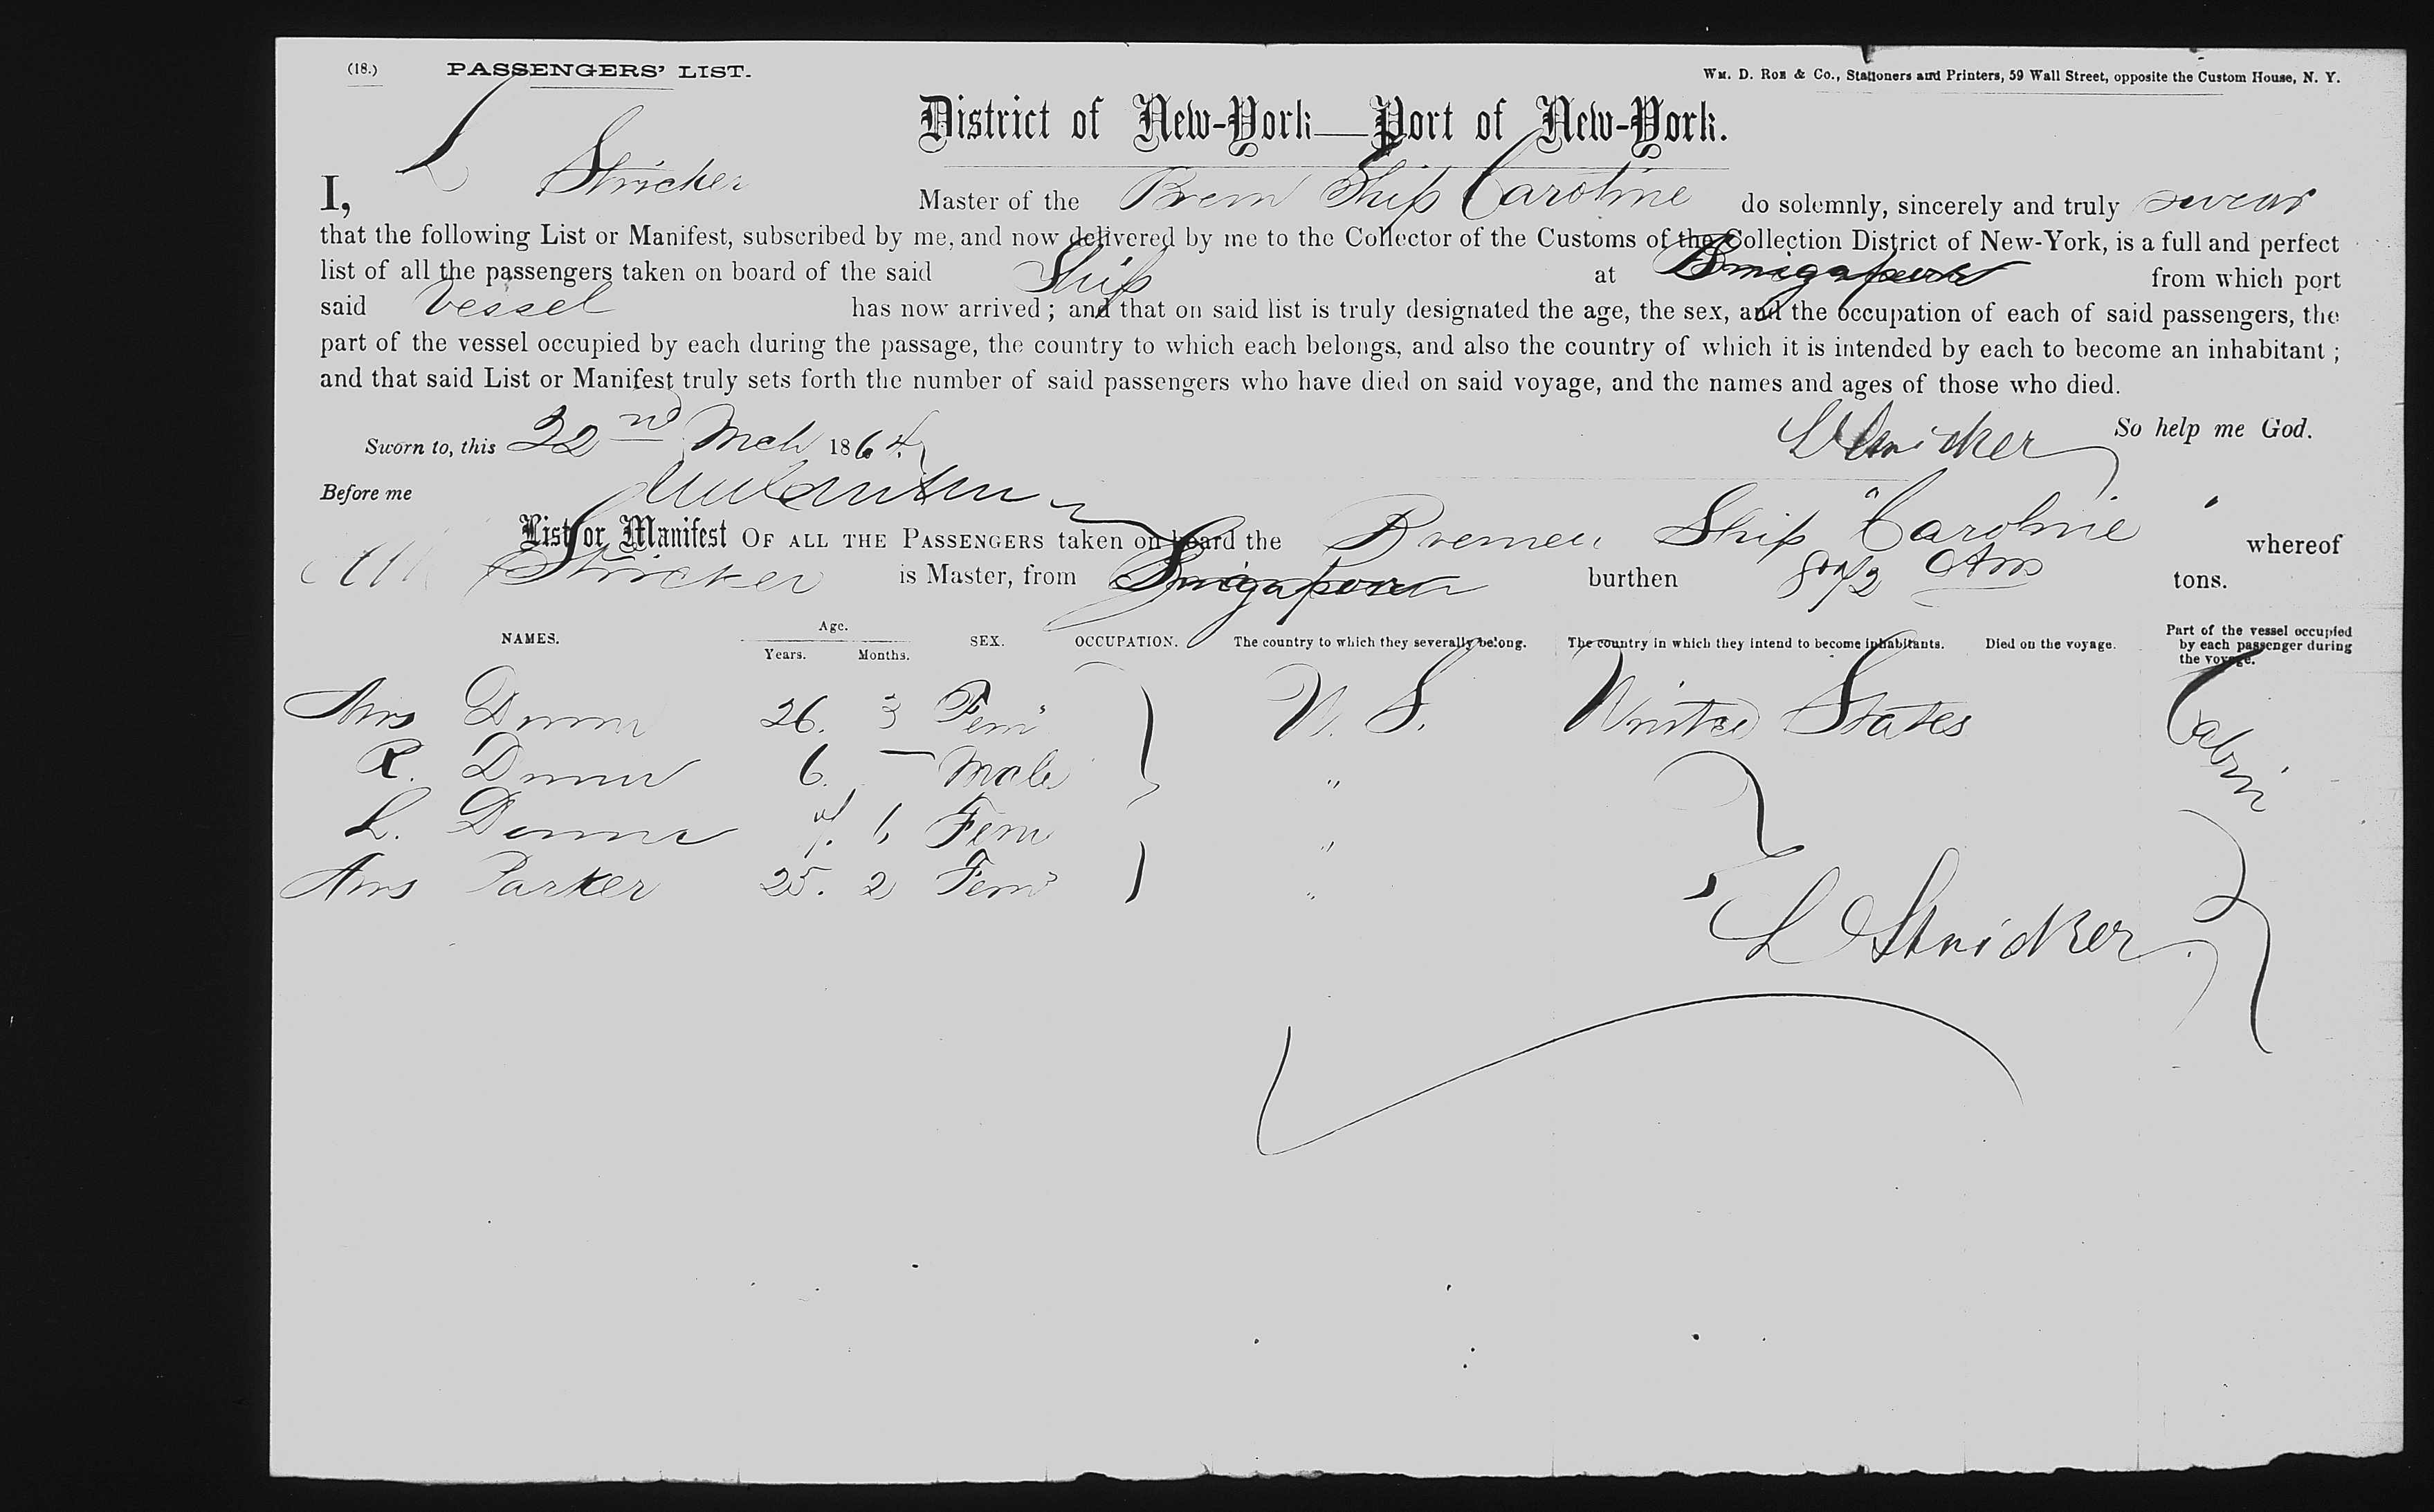 (18.) PASSENGERS' LIST.
Wm. D. Roe & Co., Stationers and Printers, 59 Wall Street, opposite the Custom House, N. Y.
District of New-York—Port of New-York.
I, L Stricker Master of the Brem Ship Caroline do solemnly, sincerely and truly swear
that the following List or Manifest, subscribed by me, and now delivered by me to the Collector of the Customs of the Collection District of New-York, is a full and perfect
list of all the passengers taken on board of the said Ship at Singapore from which port
said Vessel has now arrived; and that on said list is truly designated the age, the sex, and the occupation of each of said passengers, the
part of the vessel occupied by each during the passage, the country to which each belongs, and also the country of which it is intended by each to become an inhabitant;
and that said List or Manifest truly sets forth the number of said passengers who have died on said voyage, and the names and ages of those who died.
Sworn to, this 22nd Mch 1864. L Stricker So help me God.
Before me
List or Manifest OF ALL THE PASSENGERS taken on board the Bremen Ship "Caroline" whereof
Stricker is Master, from Singapore burthen tons.
NAMES. Age. Years. Months. SEX. OCCUPATION. The country to which they severally belong. The country in which they intend to become inhabitants. Died on the voyage. Part of the vessel occupied by each passenger during the voyage.
Mrs 26. 3 Fem U. S. United States Cabin
R. 6. — Male "
L. Fem "
Mrs Parker 25. 2 Fem "
L Stricker